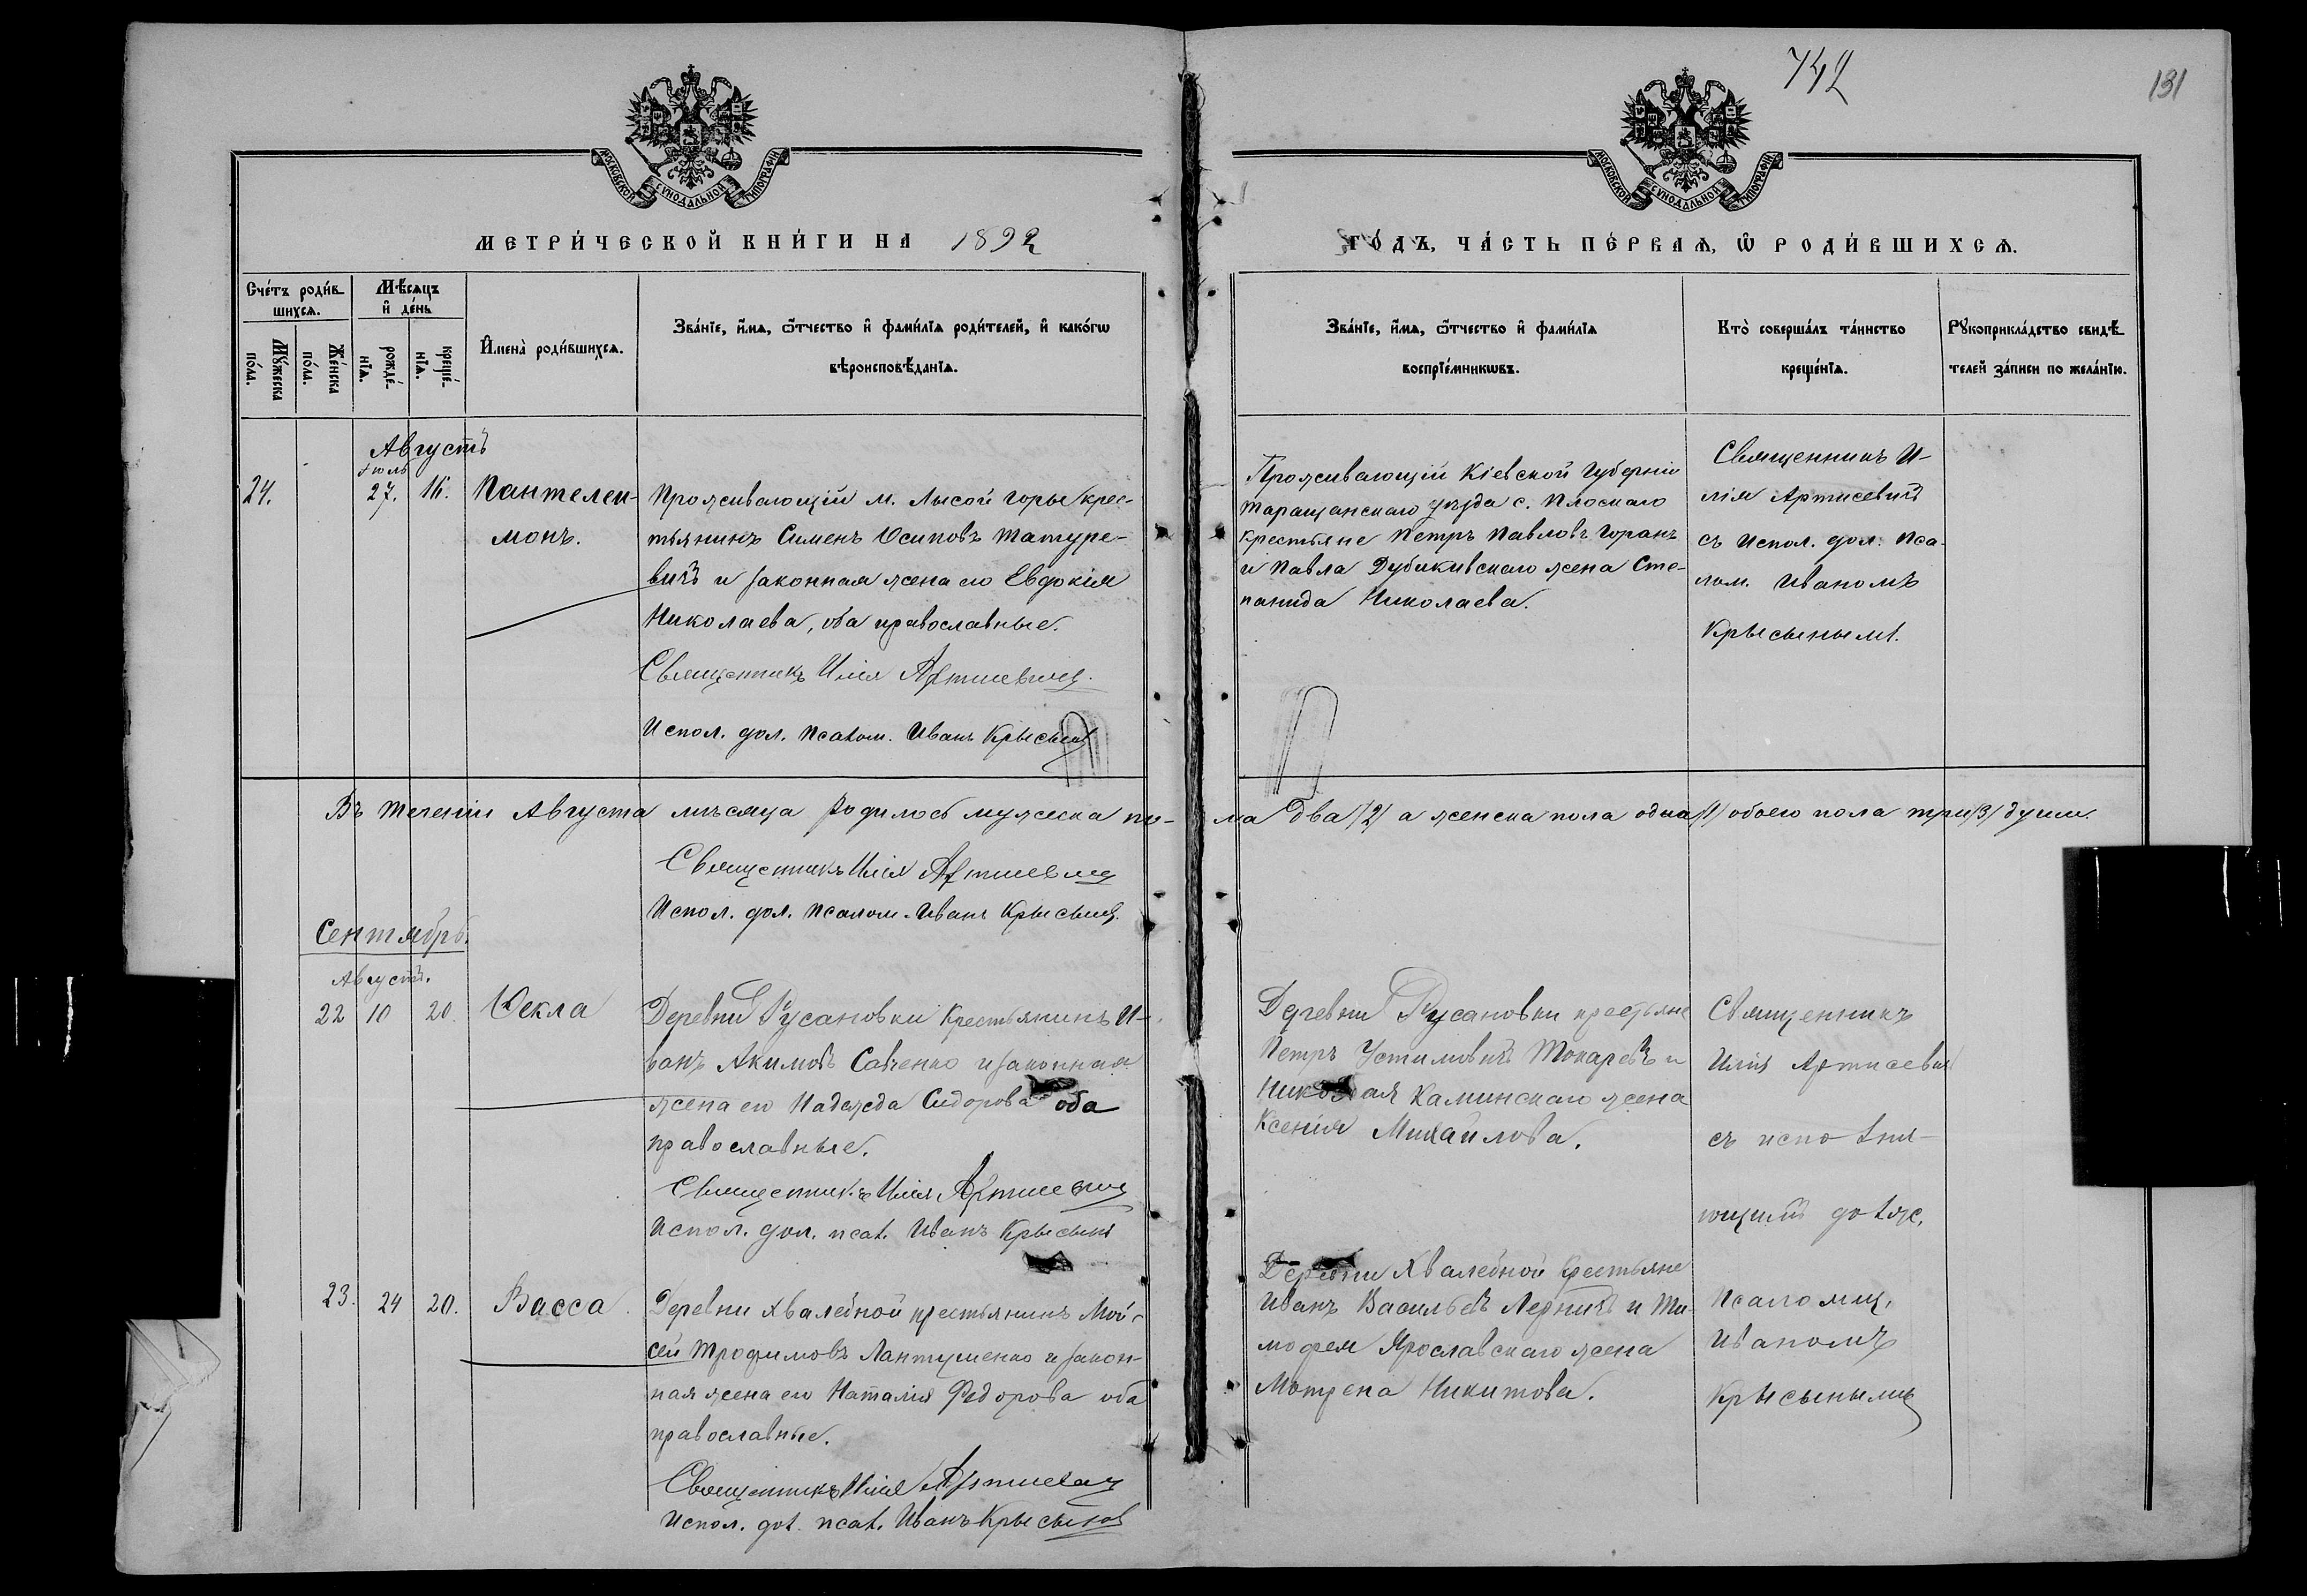 742
131
МОСКОВСКОЙ СѴНОДАЛЬНОЙ ТИПОГРАФІИ
МОСКОВСКОЙ СѴНОДАЛЬНОЙ ТИПОГРАФІИ
МЕТРИ́ЧЕСКОЙ КНИ́ГИ НА 1892
ГО́ДЪ, ЧА́СТЬ ПЕ́РВАѦ, Ѡ҆ РОДИ́ВШИХСѦ.
Сче́тъ роди́в-
шихсѧ.
Мꙋ́жеска
по́ла.
Же́нска
по́ла.
Мѣ́сѧцъ
и҆ де́нь
рожде́-
нїѧ.
креще́-
нїѧ.
И҆мена̀ роди́вшихсѧ.
Зва́нїе, и҆́мѧ, ѻ҆́тчество и҆ фами́лїѧ роди́телей, и҆ како́гѡ
вѣроисповѣ́данїѧ.
Зва́нїе, и҆́мѧ, ѻ҆́тчество и҆ фами́лїѧ
воспрїе́мникѡвъ.
Кто̀ соверша́лъ та́инство
креще́нїѧ.
Рꙋкоприкла́дство свидѣ́-
телей за́писи по жела́нїю.
Августъ
Іюль
24. 27. 16. Пантелеи-
монъ.
Проживающій м. Лысой горы крес-
тьянинъ Сименъ Осиповъ Татуре-
вичъ и законная жена его Евдокія
Николаева, оба православные.
Священникъ Илія Артисевич
Испол. дол. псалом. Иванъ Крысинъ
Проживающій Кіевской Губерніи
Таращанскаго уѣзда с. Плоскаго
крестьяне Петръ Павловъ Горанъ
и Павла Дубикивскаго жена Сте-
панида Николаева.
Священникъ И-
лія Артисевичъ
съ испол. дол. Пса-
лом. Иваномъ
Крысынымъ.
Въ теченіи Августа мѣсяца родилось мужеска по- ла два /2/ а женска пола одна /1/ обоего пола три /3/ души.
Священникъ Илія Артисевич
Испол. дол. псалом. Иванъ Крысынъ.
Сентябрь.
Августъ.
22 10 20. Ѳекла
Деревни Русановки крестьянинъ И-
ванъ Акимовъ Савченко и законная
жена его Надежда Сидорова оба
православные.
Священникъ Илія Артисевич
Испол. дол. псал. Иванъ Крысынъ
Деревни Русановки крестьяне
Петръ Устимовичъ Токаревъ и
Николая Каминскаго жена
Ксенія Михайлова.
Священникъ
Илія Артисевич
съ исполня-
ющимъ долж.
23. 24 20. Васса.
Деревни Хвалебной крестьянинъ Мой-
сей Трофимовъ Лантушенко и закон-
ная жена его Наталія Федорова оба
православные.
Священникъ Илія Артисевич
Испол. дол. псал. Иванъ Крысынъ
Деревни Хвалебной крестьяне
Иванъ Васильевъ и Ти-
мофея Ярославскаго жена
Мотрена Никитова.
псаломщ.
Иваномъ
Крысынымъ